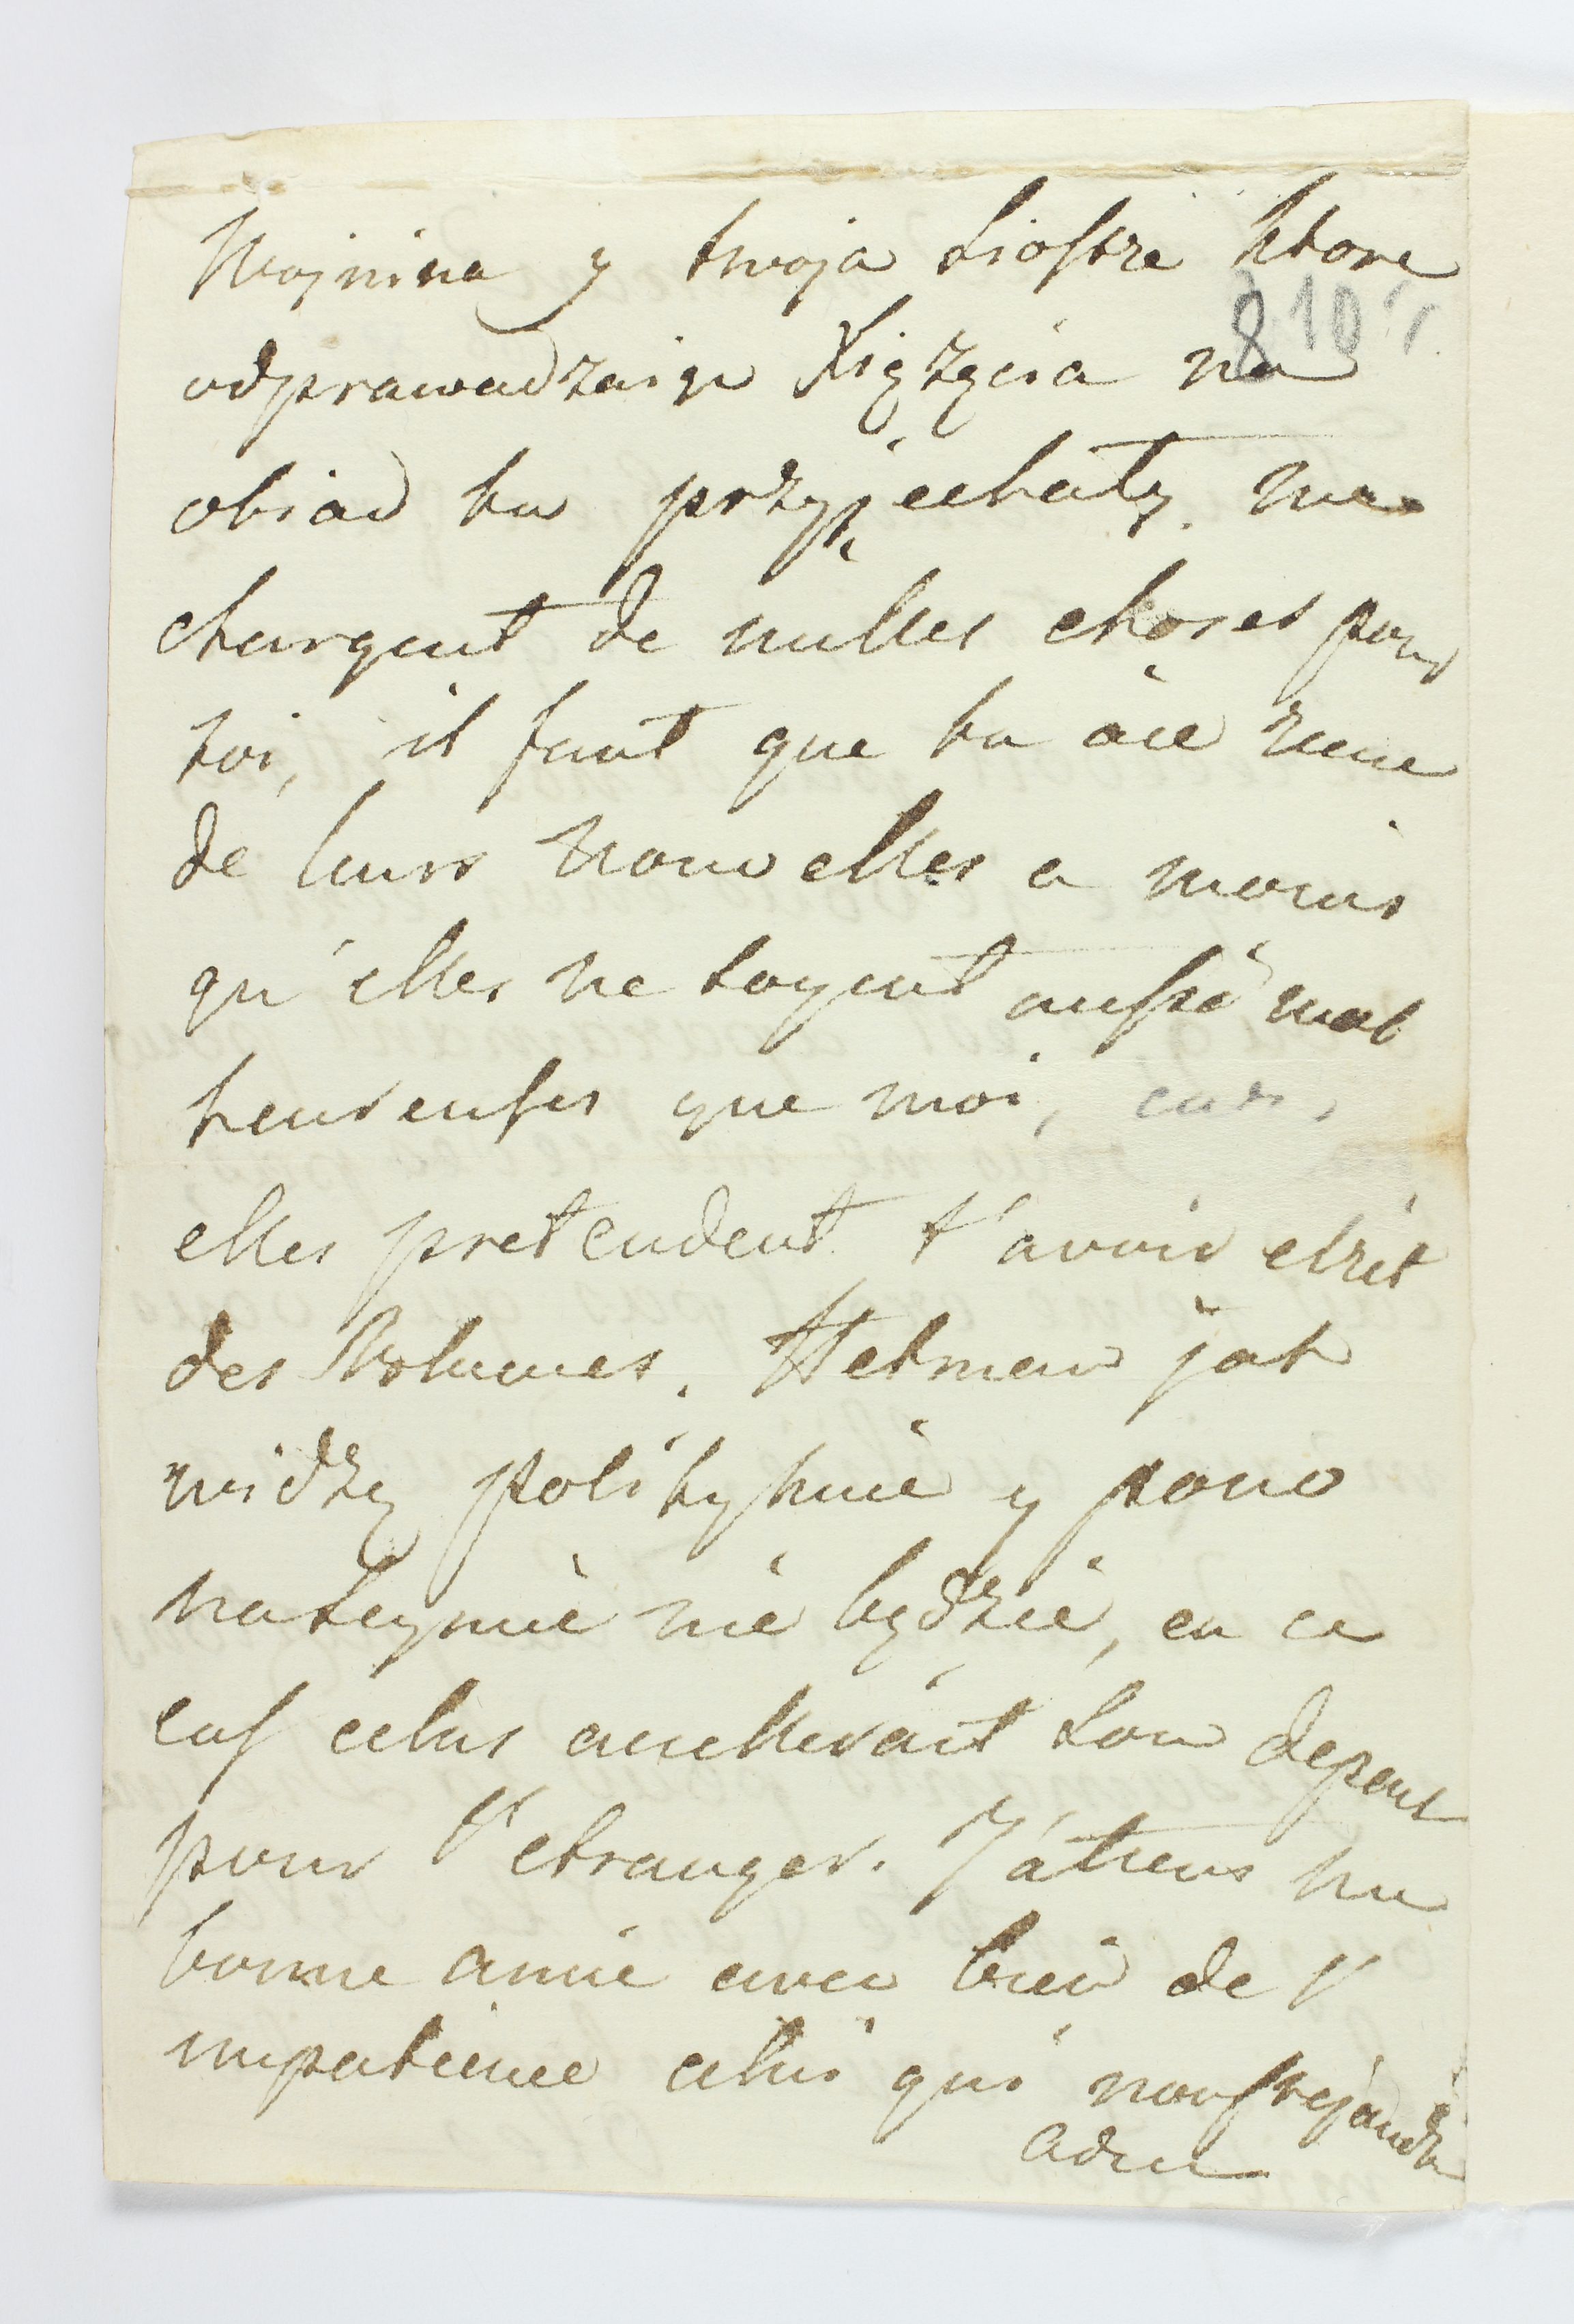 Wojnina y twoja Siostre ktore
810
odprawadzaiąc Xiężęcia na
obiad tu przyjechały. me
chargent de milles choses pour
toi, il faut que tu aie reçue
de leurs nouvelles a moins
qu'elles ne soyent aussi mal
heureuses que moi, car,
elles pretendent t'avoir ecrit
des Volumes. Hetman jak
widzę politykuie y pono
natęymie nie będzie, en ce
cas celui acullerait son depart
pour l'etranger. J'attens ma
bonne amie avec bien de l'
impatience celui qui nous rejoindra
adieu